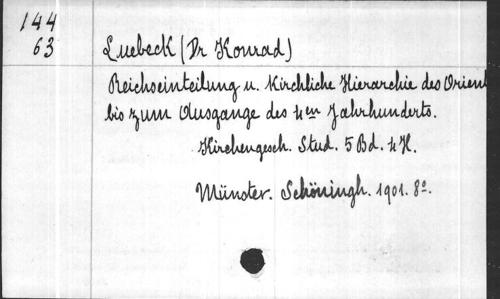 144
63
Luebeck (Dr Konrad)
Reichseinteilung u. Kirchliche Hierarchie des Orien
bis zum Ausgange des 4en Jahrhunderts.
Kirchengesch. Stud. 5 Bd. 4 H.
Münster. Schöningh. 1901. 8º.